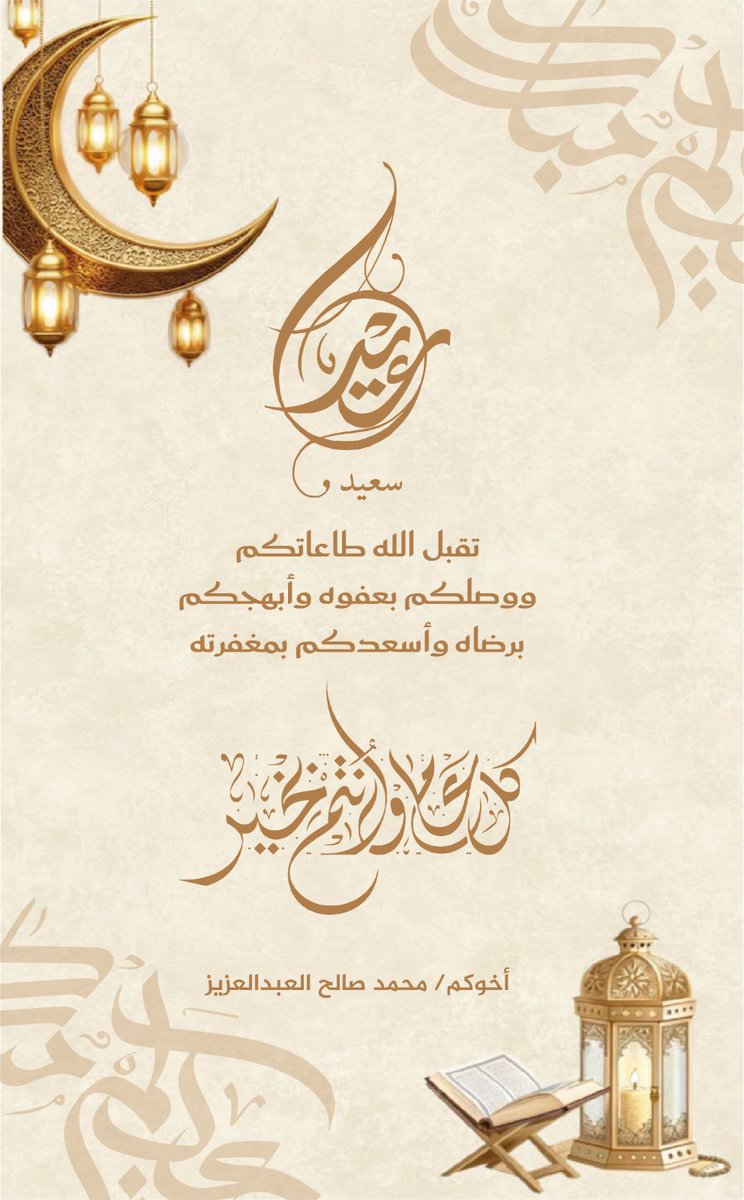 عيد
سعيد و
تقبل الله طاعاتكم
ووصلكم بعفوه وأبهجكم
برضاه وأسعدكم بمغفرته
كل عام وأنتم بخير
أخوكم/ محمد صالح العبدالعزيز